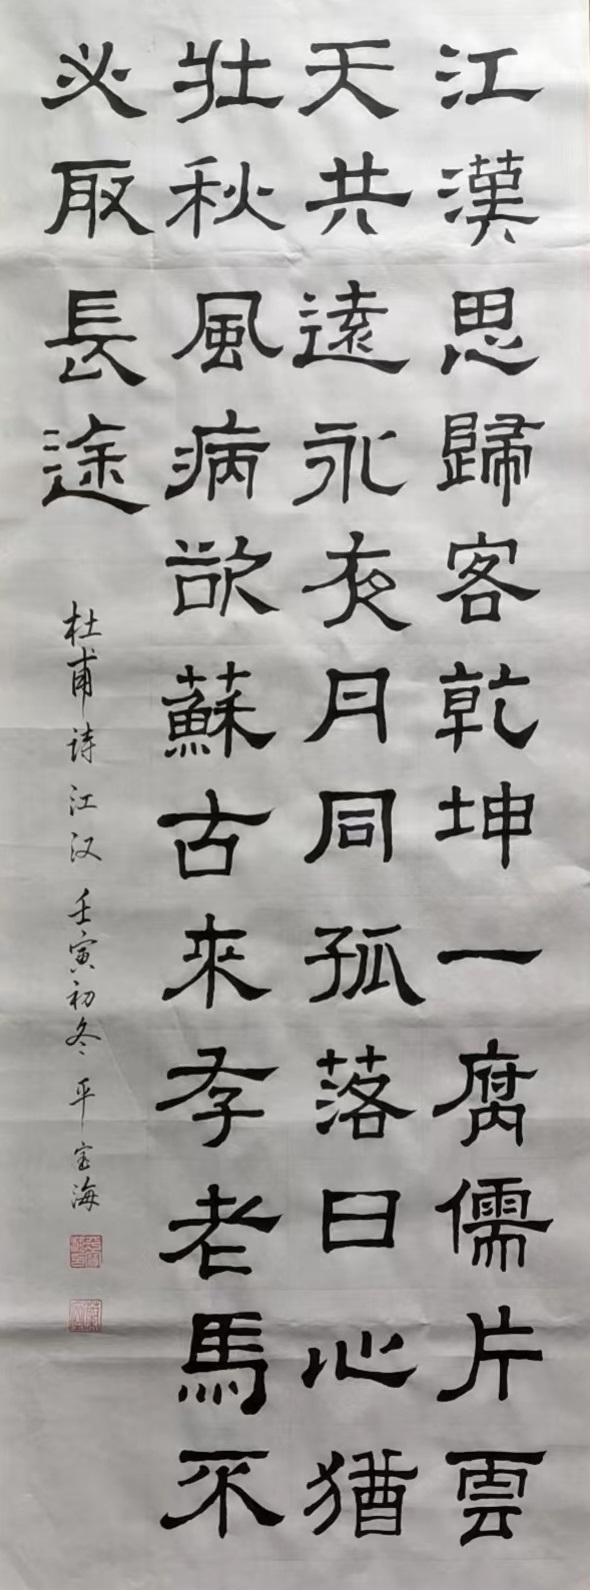 江漢思歸客乾坤一腐儒片雲
天共遠永夜月同孤落日心猶
壯秋風病欲蘇古來存老馬不
必取長途
杜甫诗江汉壬寅初冬平宝海